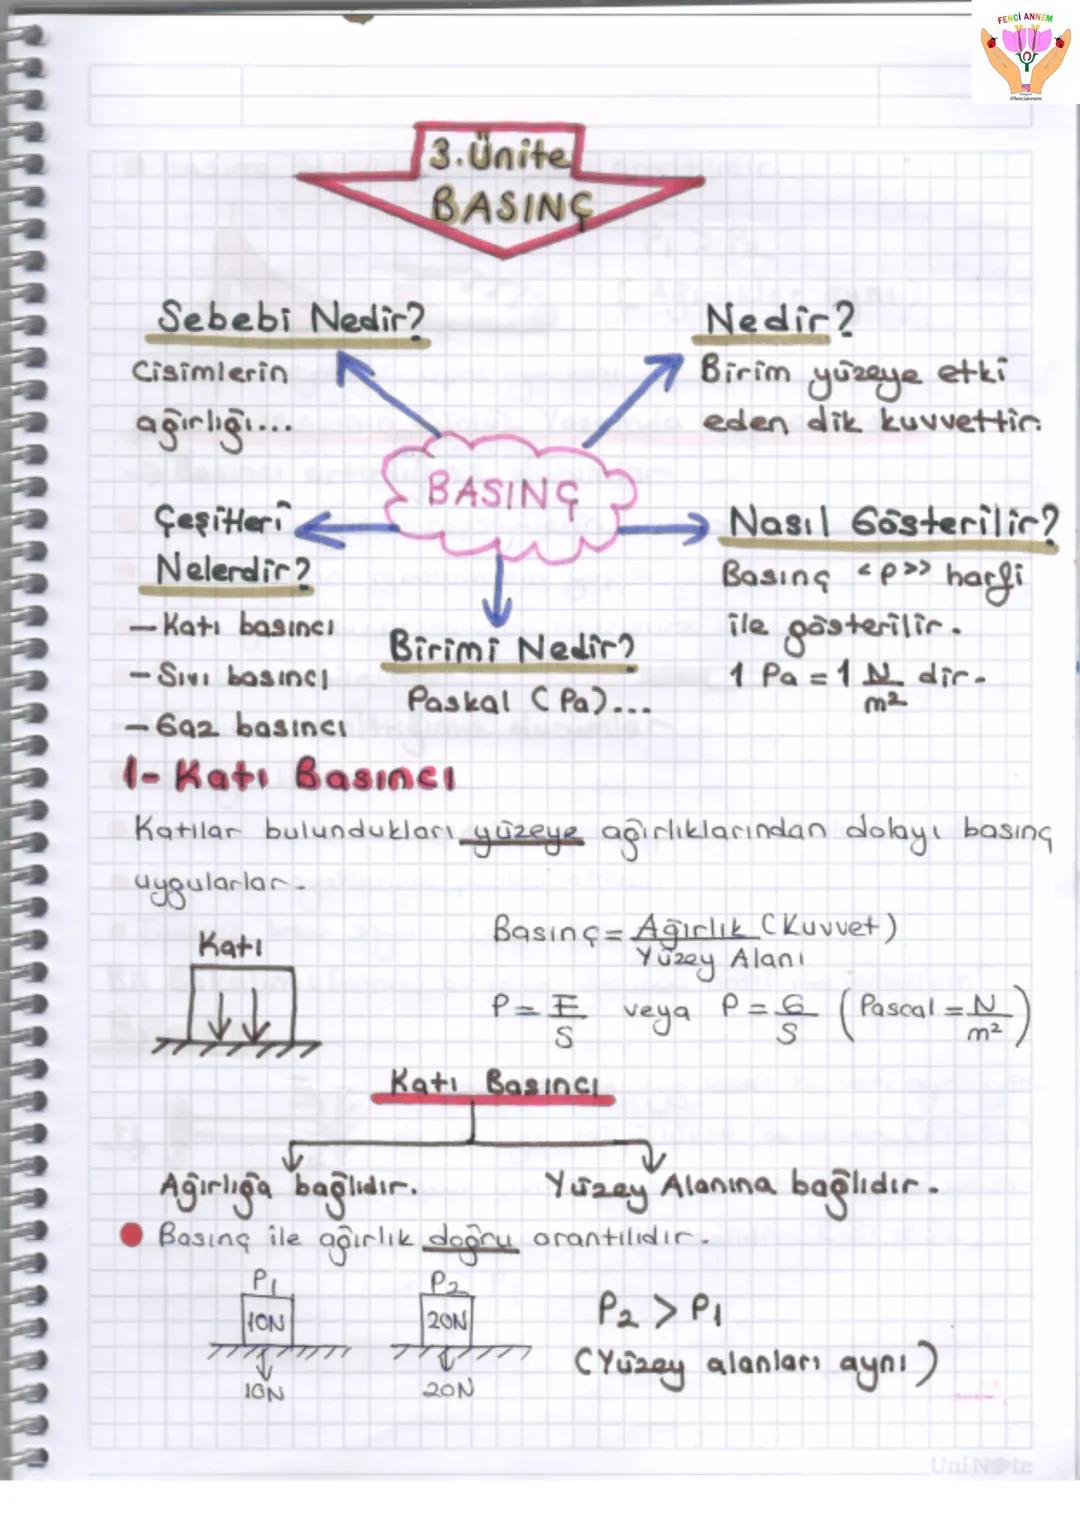 FENCİ ANNEM
@fenciannem
3.Ünite
BASINÇ
Sebebi Nedir?
Cisimlerin
ağırlığı...
Nedir?
Birim yüzeye etki
eden dik kuvvettir.
BASINÇ
Çeşitleri
Nelerdir?
- Katı basıncı
- Sıvı basıncı
- Gaz basıncı
Nasıl Gösterilir?
Basınç <P>> harfi
ile gösterilir.
1 Pa = 1 N/m² dir.
Birimi Nedir?
Paskal (Pa)...
1- Katı Basıncı
Katılar bulundukları yüzeye ağırlıklarından dolayı basınç
uygularlar.
Katı
Basınç = Ağırlık (Kuvvet)
Yüzey Alanı
P = F/S veya P = G/S (Pascal = N/m²)
Katı Basıncı
Ağırlığa bağlıdır.
Yüzey Alanına bağlıdır.
Basınç ile ağırlık doğru orantılıdır.
P1
10N
10N
P2
20N
20N
P2 > P1
(Yüzey alanları aynı)
UniNote